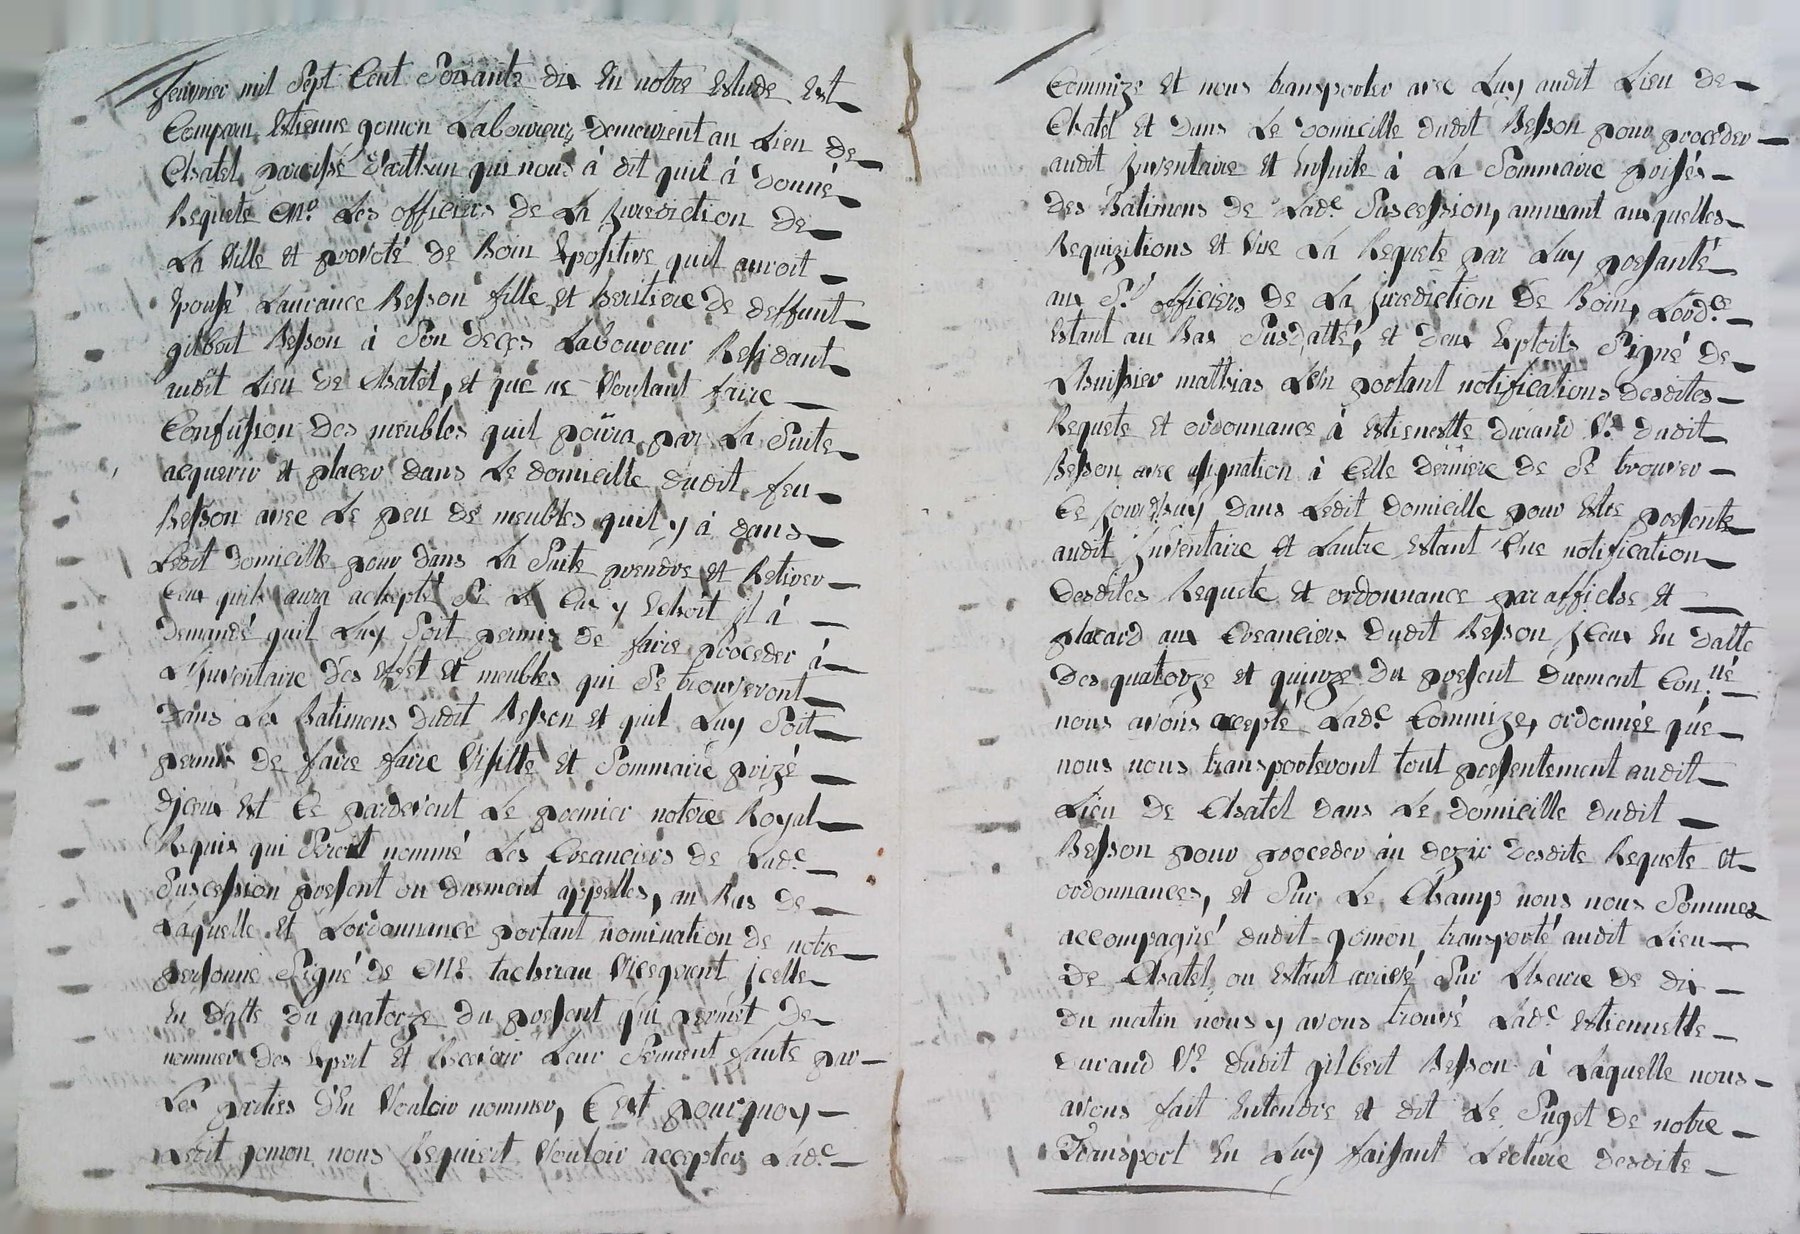 feuvrier mil Sept Cent Soixante dix En notre Estude Est
Comparu Estienne gomon Laboureur, demeurent au Lien de
Chatel paroisse qui nous à dit quil à donné
Requete Mrs Les officiers de La Juridiction de
La Ville et provoté de Boin Expositive quil auroit
Epousé Laurance Besson fille et heritiere de deffunt
gilbert Besson à Son deçes Laboureur Residant
audit Lieu de Chatel, et que ne Voulant faire
Confusion des meubles quil poüra par La Suite
acquerir et placer dans Le domicille dudit feu
Besson avec Le peu de meubles quil y à dans
Ledit domicille pour dans La Suite prendre et Retirer
Ceux quils aura achepté Si Le Cas y Echoit il à
demandé quil Luy Soit permis de faire proceder à
L'Inventaire des Effet et meubles qui Se trouveront
dans Les Batimens dudit Besson et quil Luy Soit
permis de faire faire Visitte et Sommaire prizé
dJceux Est Ce pardevent Le premier notere Royal
Requis qui Seroit nommé Les Creanciers de Ladc
Sucession present ou duement appelles, au Bas de
Laquelle et Lordonnance portant nomination de notre
personne Signé de Mr tacherau Vicegerent jcelle
En datte du quatorze du present qui permet de
nommer des Expert et Recevoir Leur Serment faute par
Les parties d'En Vouloir nommer, C'est pourquoy
Ledit gomon nous Requiert Vouloir accepter Ladc
Commize et nous transporter avec Luy audit Lieu de
Chatel et dans Le domicille dudit Besson pour proceder
audit Inventaire et Ensuite à La Sommaire prisés
des Batimens de Ladc Sucession, auxquelles
Requizitions et Vue La Requete par Luy presanté
aux Srs officiers de La jurediction de Boin, Lordce
Estant au Bas Susdatté, et deux Exploits Signé de
Lhuissier mathias Lun portant notifications desdites
Requete et ordonnance à Estienette durand Ve dudit
Besson avec asignation à Celle derniere de Se trouver
Ce jourdhuy dans Ledit domicille pour Estre presente
audit Inventaire et Lautre Estant Une notification
desdites Requete et ordonnance par affiche et
placard aux Creanciers dudit Besson jCeux En datte
des quatorze et quinze du present duement Con.ué
nous avons accepté Ladc Commize, ordonnée que
nous nous transporteront tout presentement audit
Lieu de Chatel dans Le domicille dudit
Besson pour proceder au dezir desdite Requete et
ordonnances, et Sur Le Champ nous nous Sommes
accompagné dudit gomon transporté audit Lieu
de Chatel, ou Estant arrivé Sur Lheure de dix
du matin nous y avons trouvé Ladc Estiennette
durand Ve dudit gilbert Besson à Laquelle nous
avons fait Entendre et dit Le Suget de notre
Transport En Luy faisant Lecture desdite